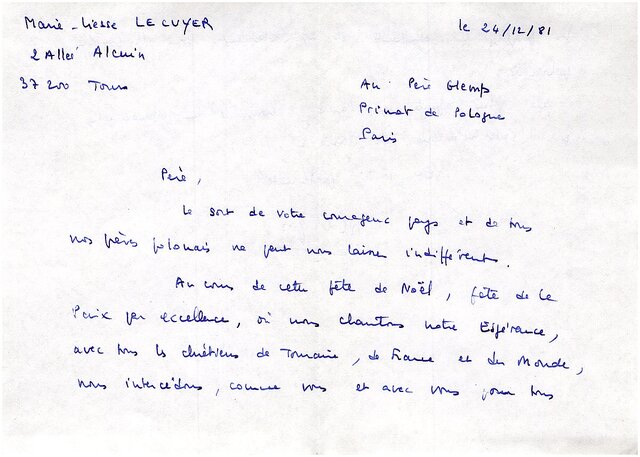 Marie-Liesse LECUYER
le 24/12/81
2 Allée Alcuin
37 200 Tours
Au Père Glemp
Primat de Pologne
Paris
Père,
Le sort de votre courageux pays et de tous
nos frères polonais ne peut nous laisser indifférents.
Au cours de cette fête de Noël, fête de la
Paix par excellence, où nous chantons notre Espérance,
avec tous les chrétiens de Touraine, de France et du Monde,
nous intercédons, comme vous et avec vous pour tous